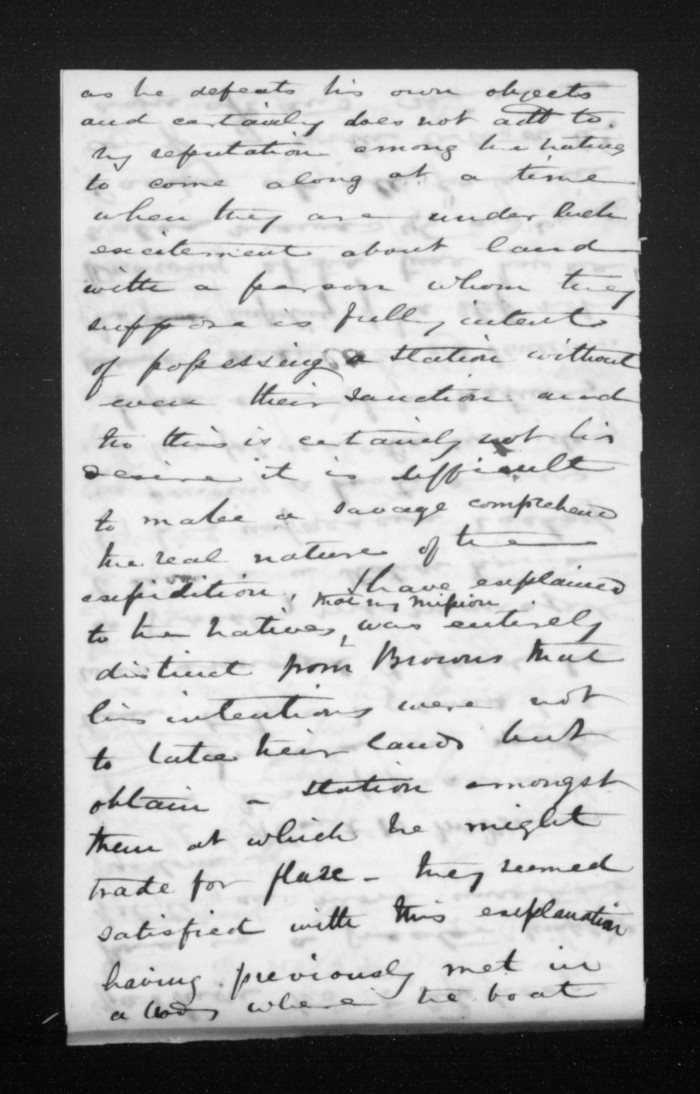 as he defeats his own objects
and certainly does not add to
my reputation among the natives
to come along at a time
when they are under such
excitement about land
with a person whom they
suppose is fully intent
of possessing a station without
even their sanction and
tho this is certainly not his
desire it is difficult
to make a savage comprehend
the real nature of the
expidition, I have explained
to the natives, that my mission was entirely
distinct from Browns that
his intentions were not
to take their lands but
obtain a station amongst
them at which he might
trade for flax - they seemed
satisfied with this explanation
having previously met in
a body where the boat